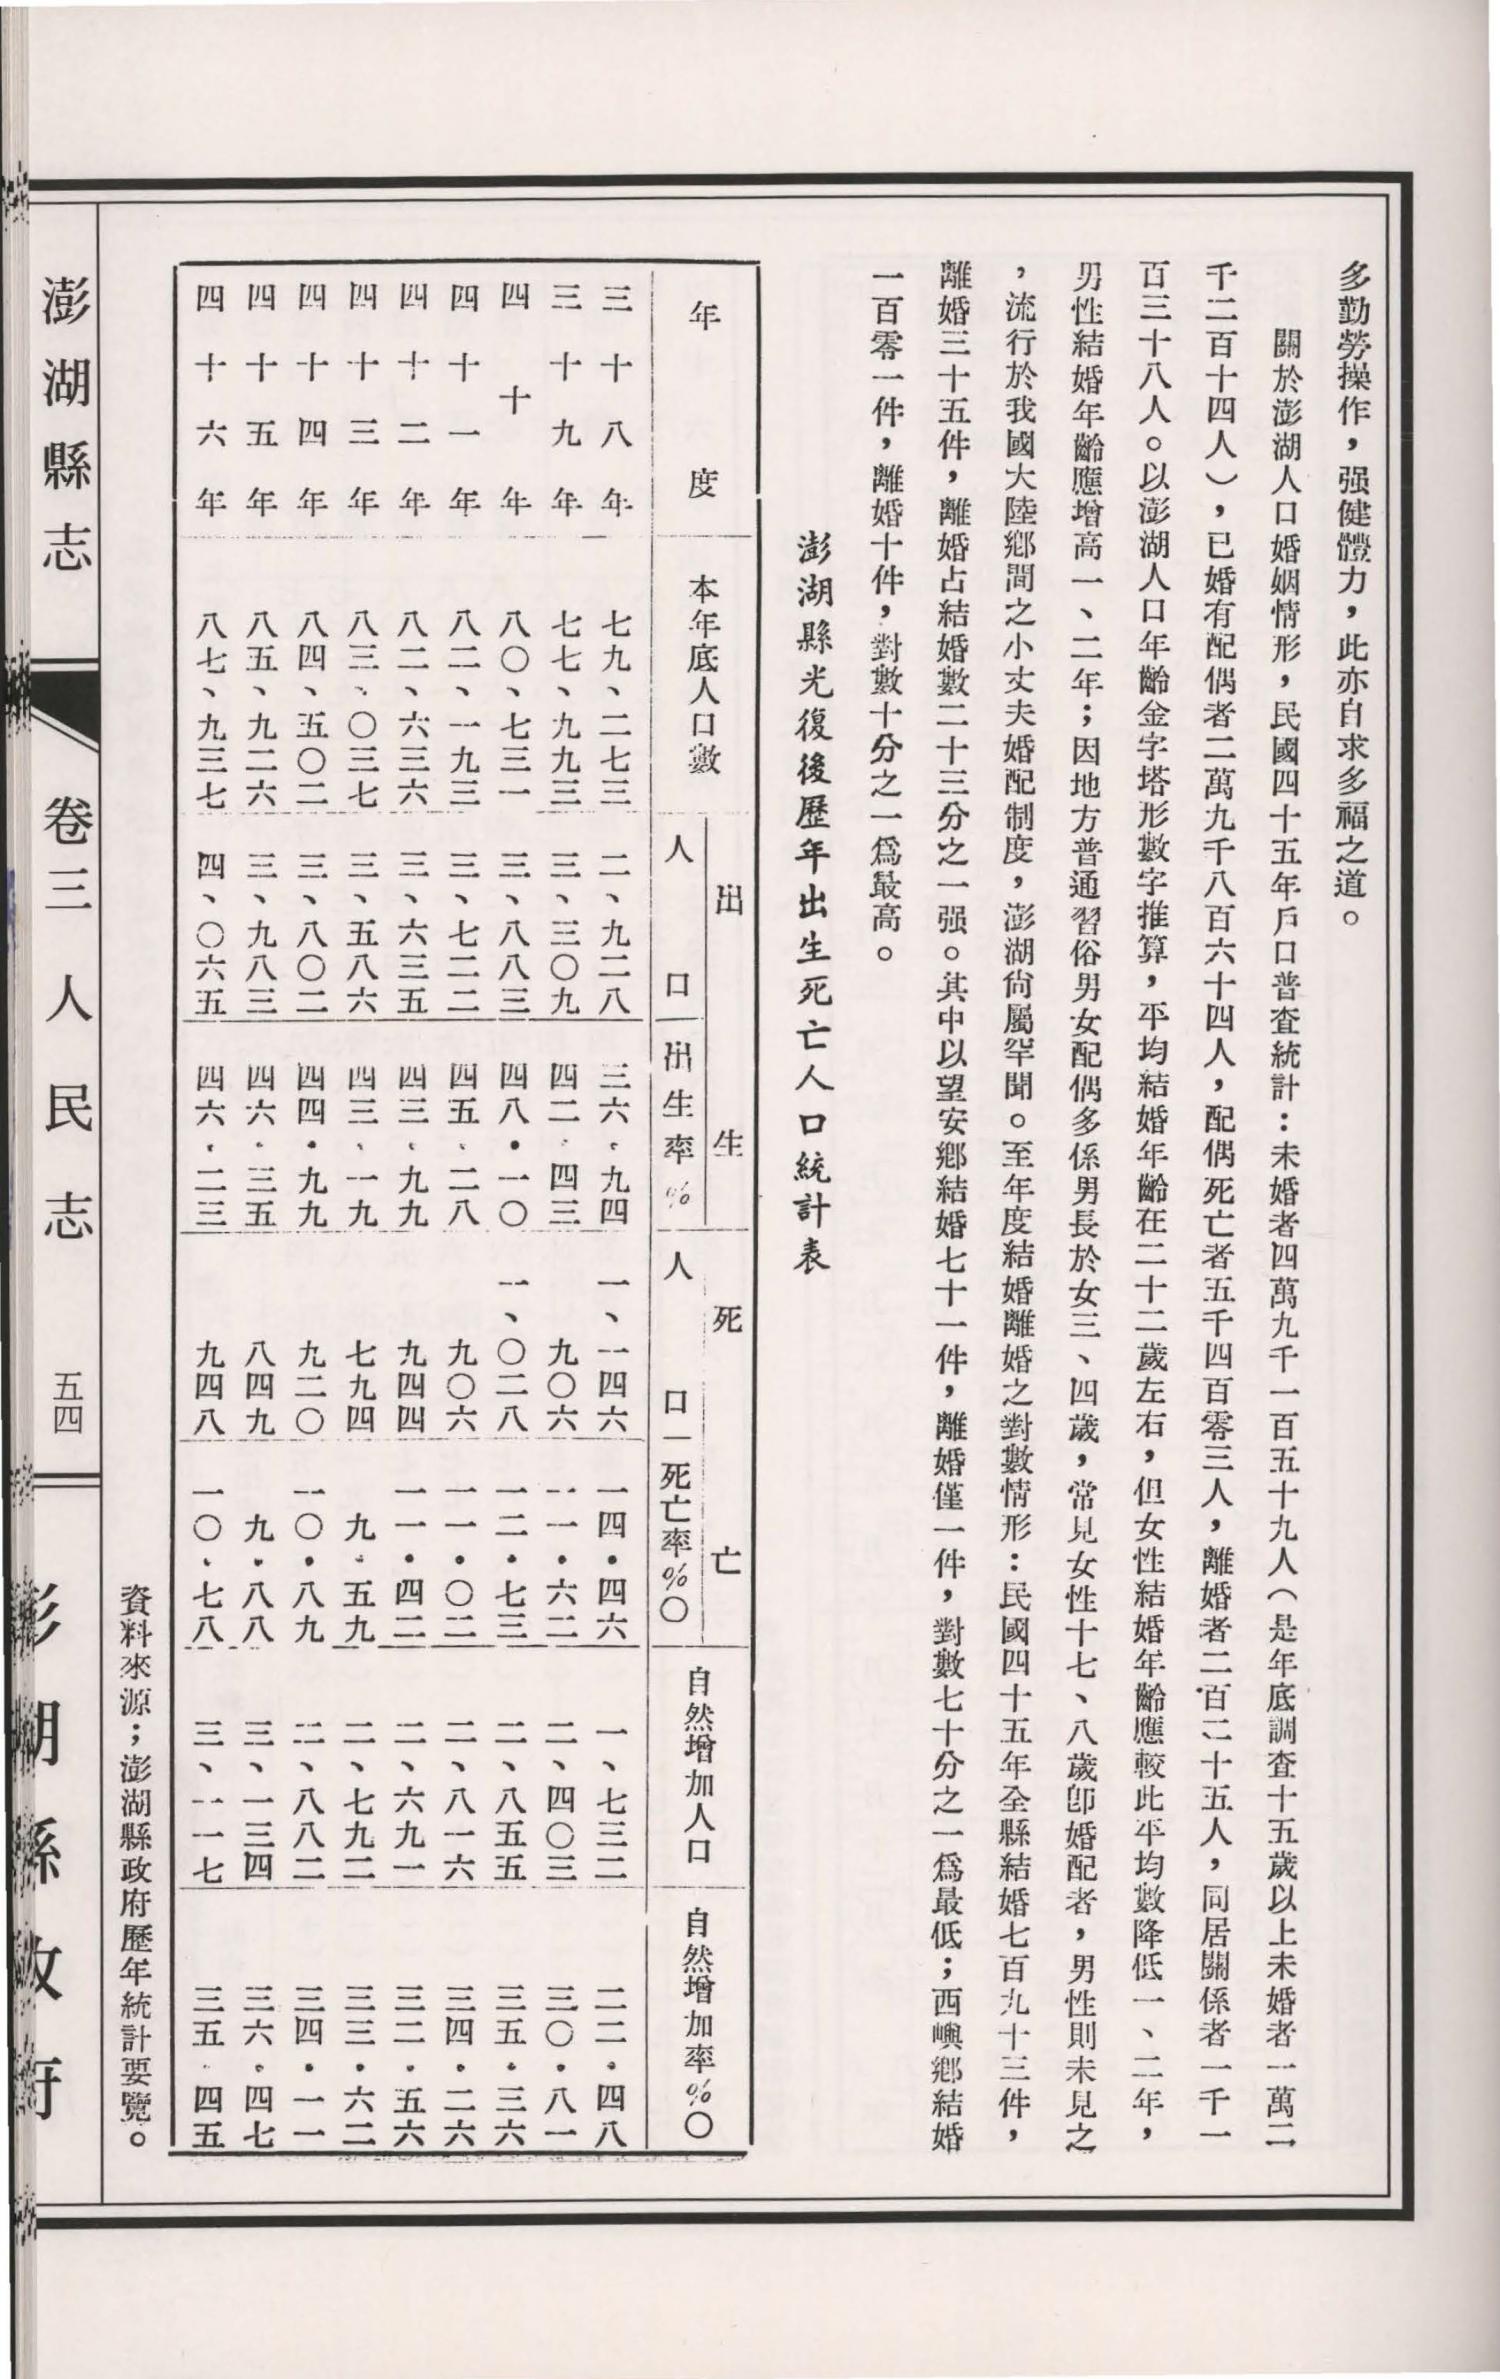 多勤勞操作，强健體力，此亦自求多福之道。
關於澎湖人口婚姻情形，民國四十五年戶口普查統計：未婚者四萬九千一百五十九人（是年底調查十五歲以上未婚者一萬二
千二百十四人），已婚有配偶者二萬九千八百六十四人，配偶死亡者五千四百零三人，離婚者二百二十五人，同居關係者一千一
百三十八人。以澎湖人口年齡金字塔形數字推算，平均結婚年齡在二十二歲左右，但女性結婚年齡應較此平均數降低一、二年，
男性結婚年齡應增高一、二年；因地方普通習俗男女配偶多係男長於女三、四歲，常見女性十七、八歲卽婚配者，男性則未見之
，流行於我國大陸鄉間之小丈夫婚配制度，澎湖尙屬罕聞。至年度結婚離婚之對數情形：民國四十五年全縣結婚七百九十三件，
離婚三十五件，離婚占結婚數二十三分之一强。其中以望安鄉結婚七十一件，離婚僅一件，對數七十分之一爲最低；西嶼鄉結婚
一百零一件，離婚十件，對數十分之一爲最高。
澎湖縣光復後歷年出生死亡人口統計表
年度 本年底人口數 出生 人口 出生率% 死亡 人口 死亡率%〇 自然增加人口 自然增加率%〇
三十八年 七九、二七三 二、九二八 三六．九四 一、一四六 一四．四六 一、七三二 二二．四八
三十九年 七七、九九三 三、三〇九 四二．四三 九〇六 一一．六二 二、四〇三 三〇．八一
四十年 八〇、七三一 三、八八三 四八．一〇 一、〇二八 一二．七三 二、八五五 三五．三六
四十一年 八二、一九三 三、七二二 四五．二八 九〇六 一一．〇二 二、八一六 三四．二六
四十二年 八二、六三六 三、六三五 四三．九九 九四四 一一．四二 二、六九一 三二．五六
四十三年 八三、〇三七 三、五八六 四三．一九 七九四 九．五九 二、七九二 三三．六二
四十四年 八四、五〇二 三、八〇二 四四．九九 九二〇 一〇．八九 二、八八二 三四．一一
四十五年 八五、九二六 三、九八三 四六．三五 八四九 九．八八 三、一三四 三六．四七
四十六年 八七、九三七 四、〇六五 四六．二三 九四八 一〇．七八 三、一一七 三五．四五
資料來源；澎湖縣政府歷年統計要覽。
澎湖縣志 卷三人民志 五四 澎湖縣政府